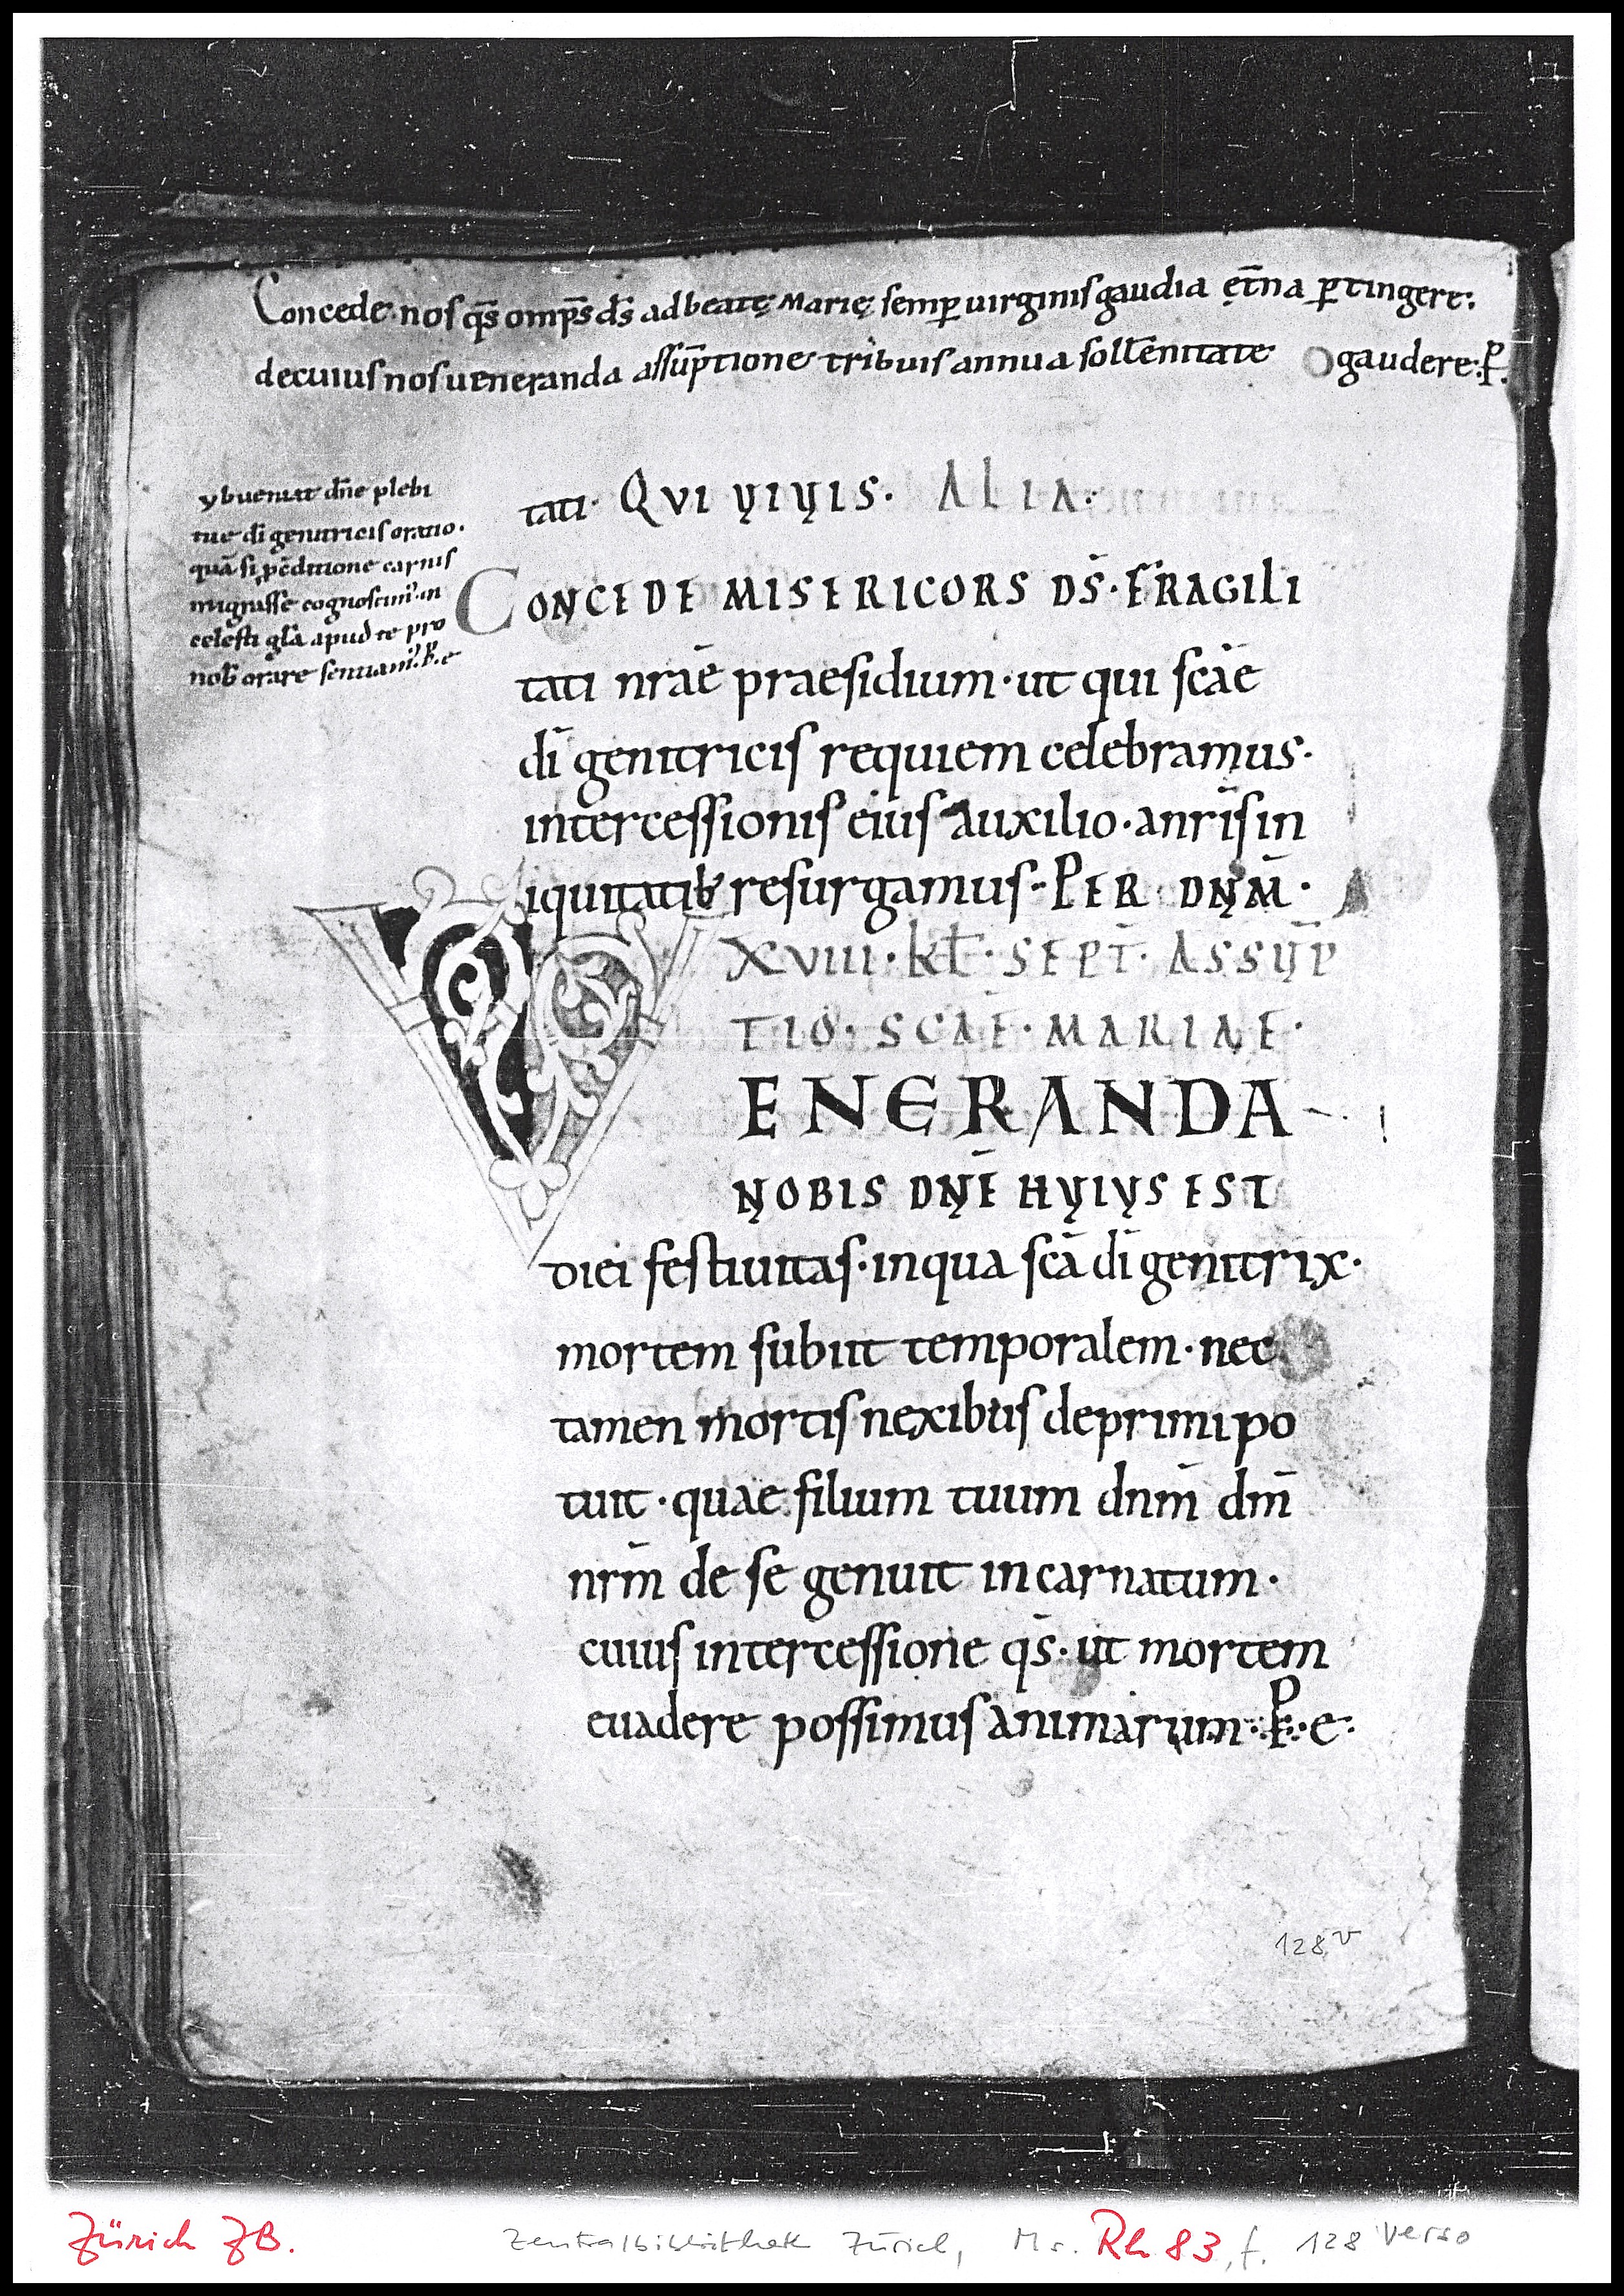 Concede nos q̄s omp̄s d̄s ad beatę Marię semp̱ uirginis gaudia ęt̄na p̱tingere:
de cuius nos ueneranda assūptione tribuis annua soll̄enitate gaudere:P̱.
ybueniat dn̄e plebi
tue dī genitricis oratio·
quā si p̱ c̄ditione carnis
migrasse cognoscim᾽ in
celesti gl̄a apud te pro
nob̄ orare sentiam᾽. P̱. e
tati· QVI VIVIS· ALIA·
CONCEDE MISERICORS D̄S· FRAGILI
tati nr̄ae praesidium· ut qui sc̄ae
dī genitricis requiem celebramus·
intercessionis eius auxilio· a nr̄is in
iquitatib; resurgamus· PER DN̄M·
XVIII· KL̄· SEPT̄· ASSVP̄
TIO· SCĀE· MARIAE·
VENERANDA
NOBIS DN̄E HVIVS EST
diei festiuitas· in qua sc̄a dī genitrix·
mortem subiit temporalem· nec
tamen mortis nexibus deprimi po
tuit· quae filium tuum dn̄m dm̄
nr̄m de se genuit incarnatum·
cuius intercessione q̄s· ut mortem
euadere possimus animarum·P̱·e·
128 v
Zürich ZB. Zentralbibliothek Zürich, Ms. Rh 83, f. 128 verso